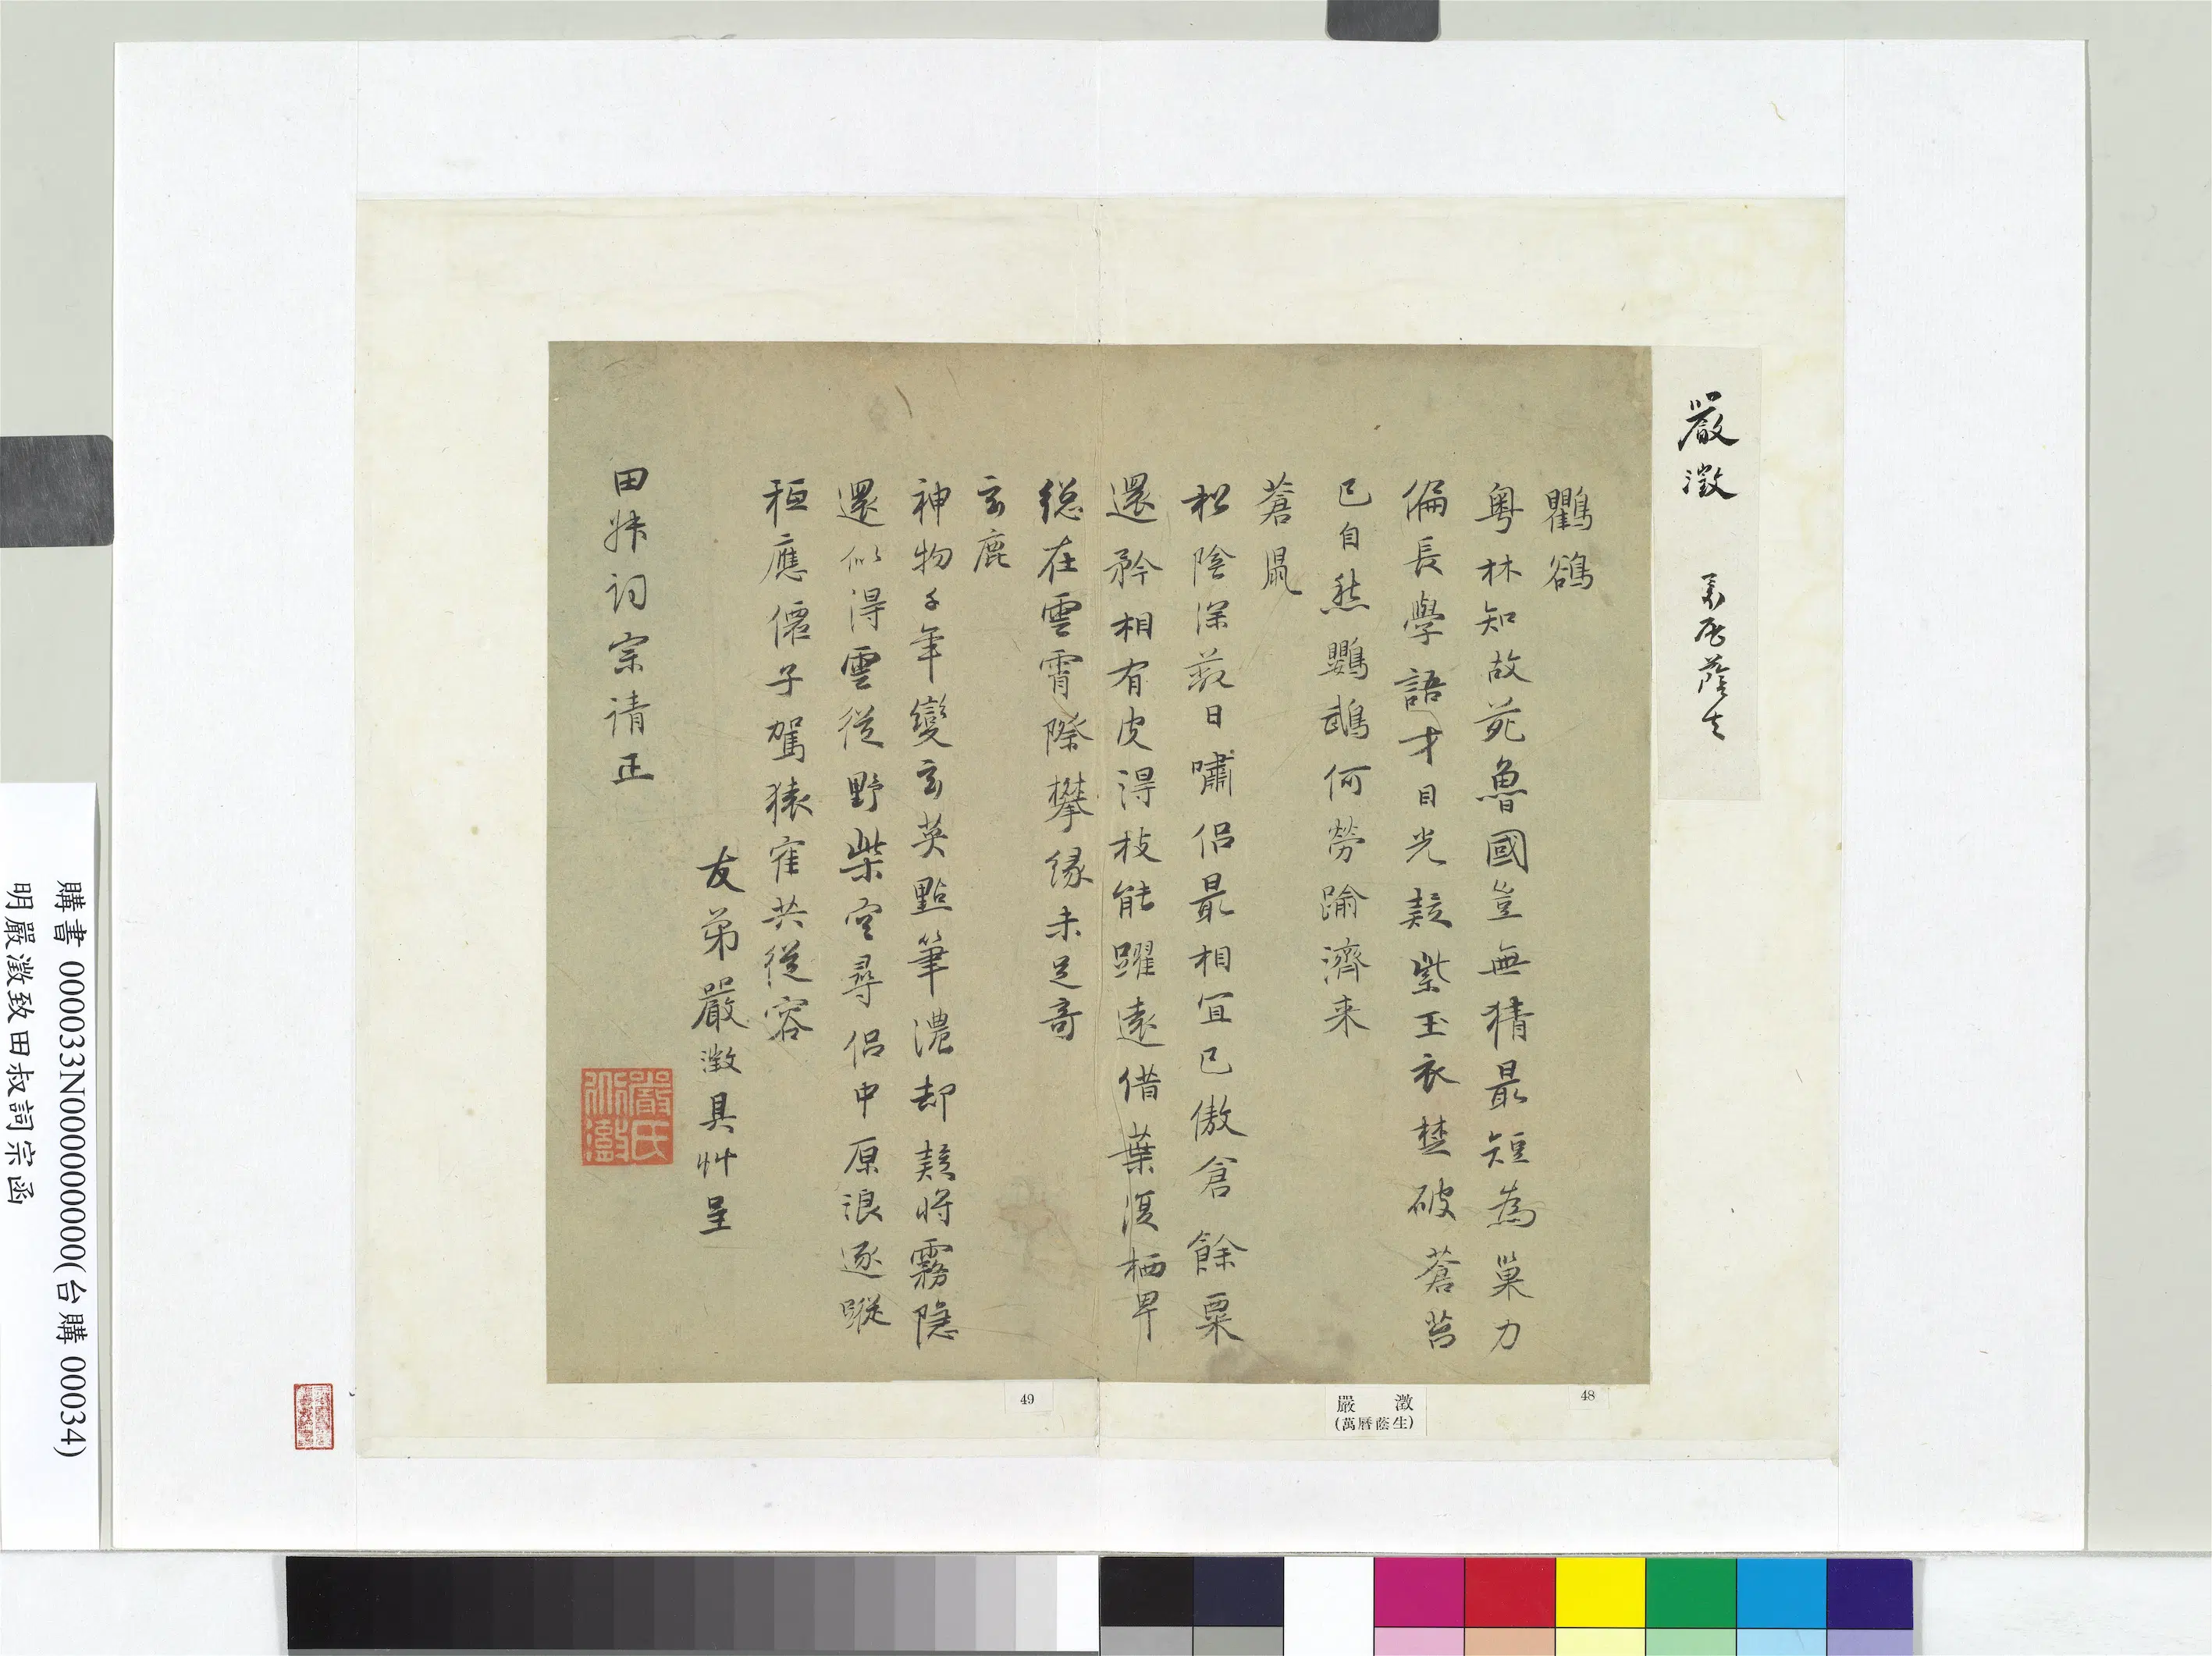 嚴澂 萬曆蔭生
鸜鵒
粵林知故苑魯國豈無猜最短為巢力
偏長學語才目光疑紫玉衣楚破蒼苔
已自愁鸚鵡何勞踰濟来
蒼鼠
松陰深蔽日嘯侶最相宜已傲倉餘粟
還矜相有皮得枝能躍遠借葉渡栖卑
総在雲霄際攀缘未足奇
玄鹿
神物千年變玄英點筆濃却疑將霧隱
還似得雲從野柴空尋侶中原浪逐蹤
秪應僊子駕猿寉共從容
友弟嚴澂具艸呈
田叔詞宗请正
嚴氏
澂
嚴 澂
(萬曆蔭生)
48
49
購書 000033N000000000(台購 00034)
明嚴澂致田叔詞宗函